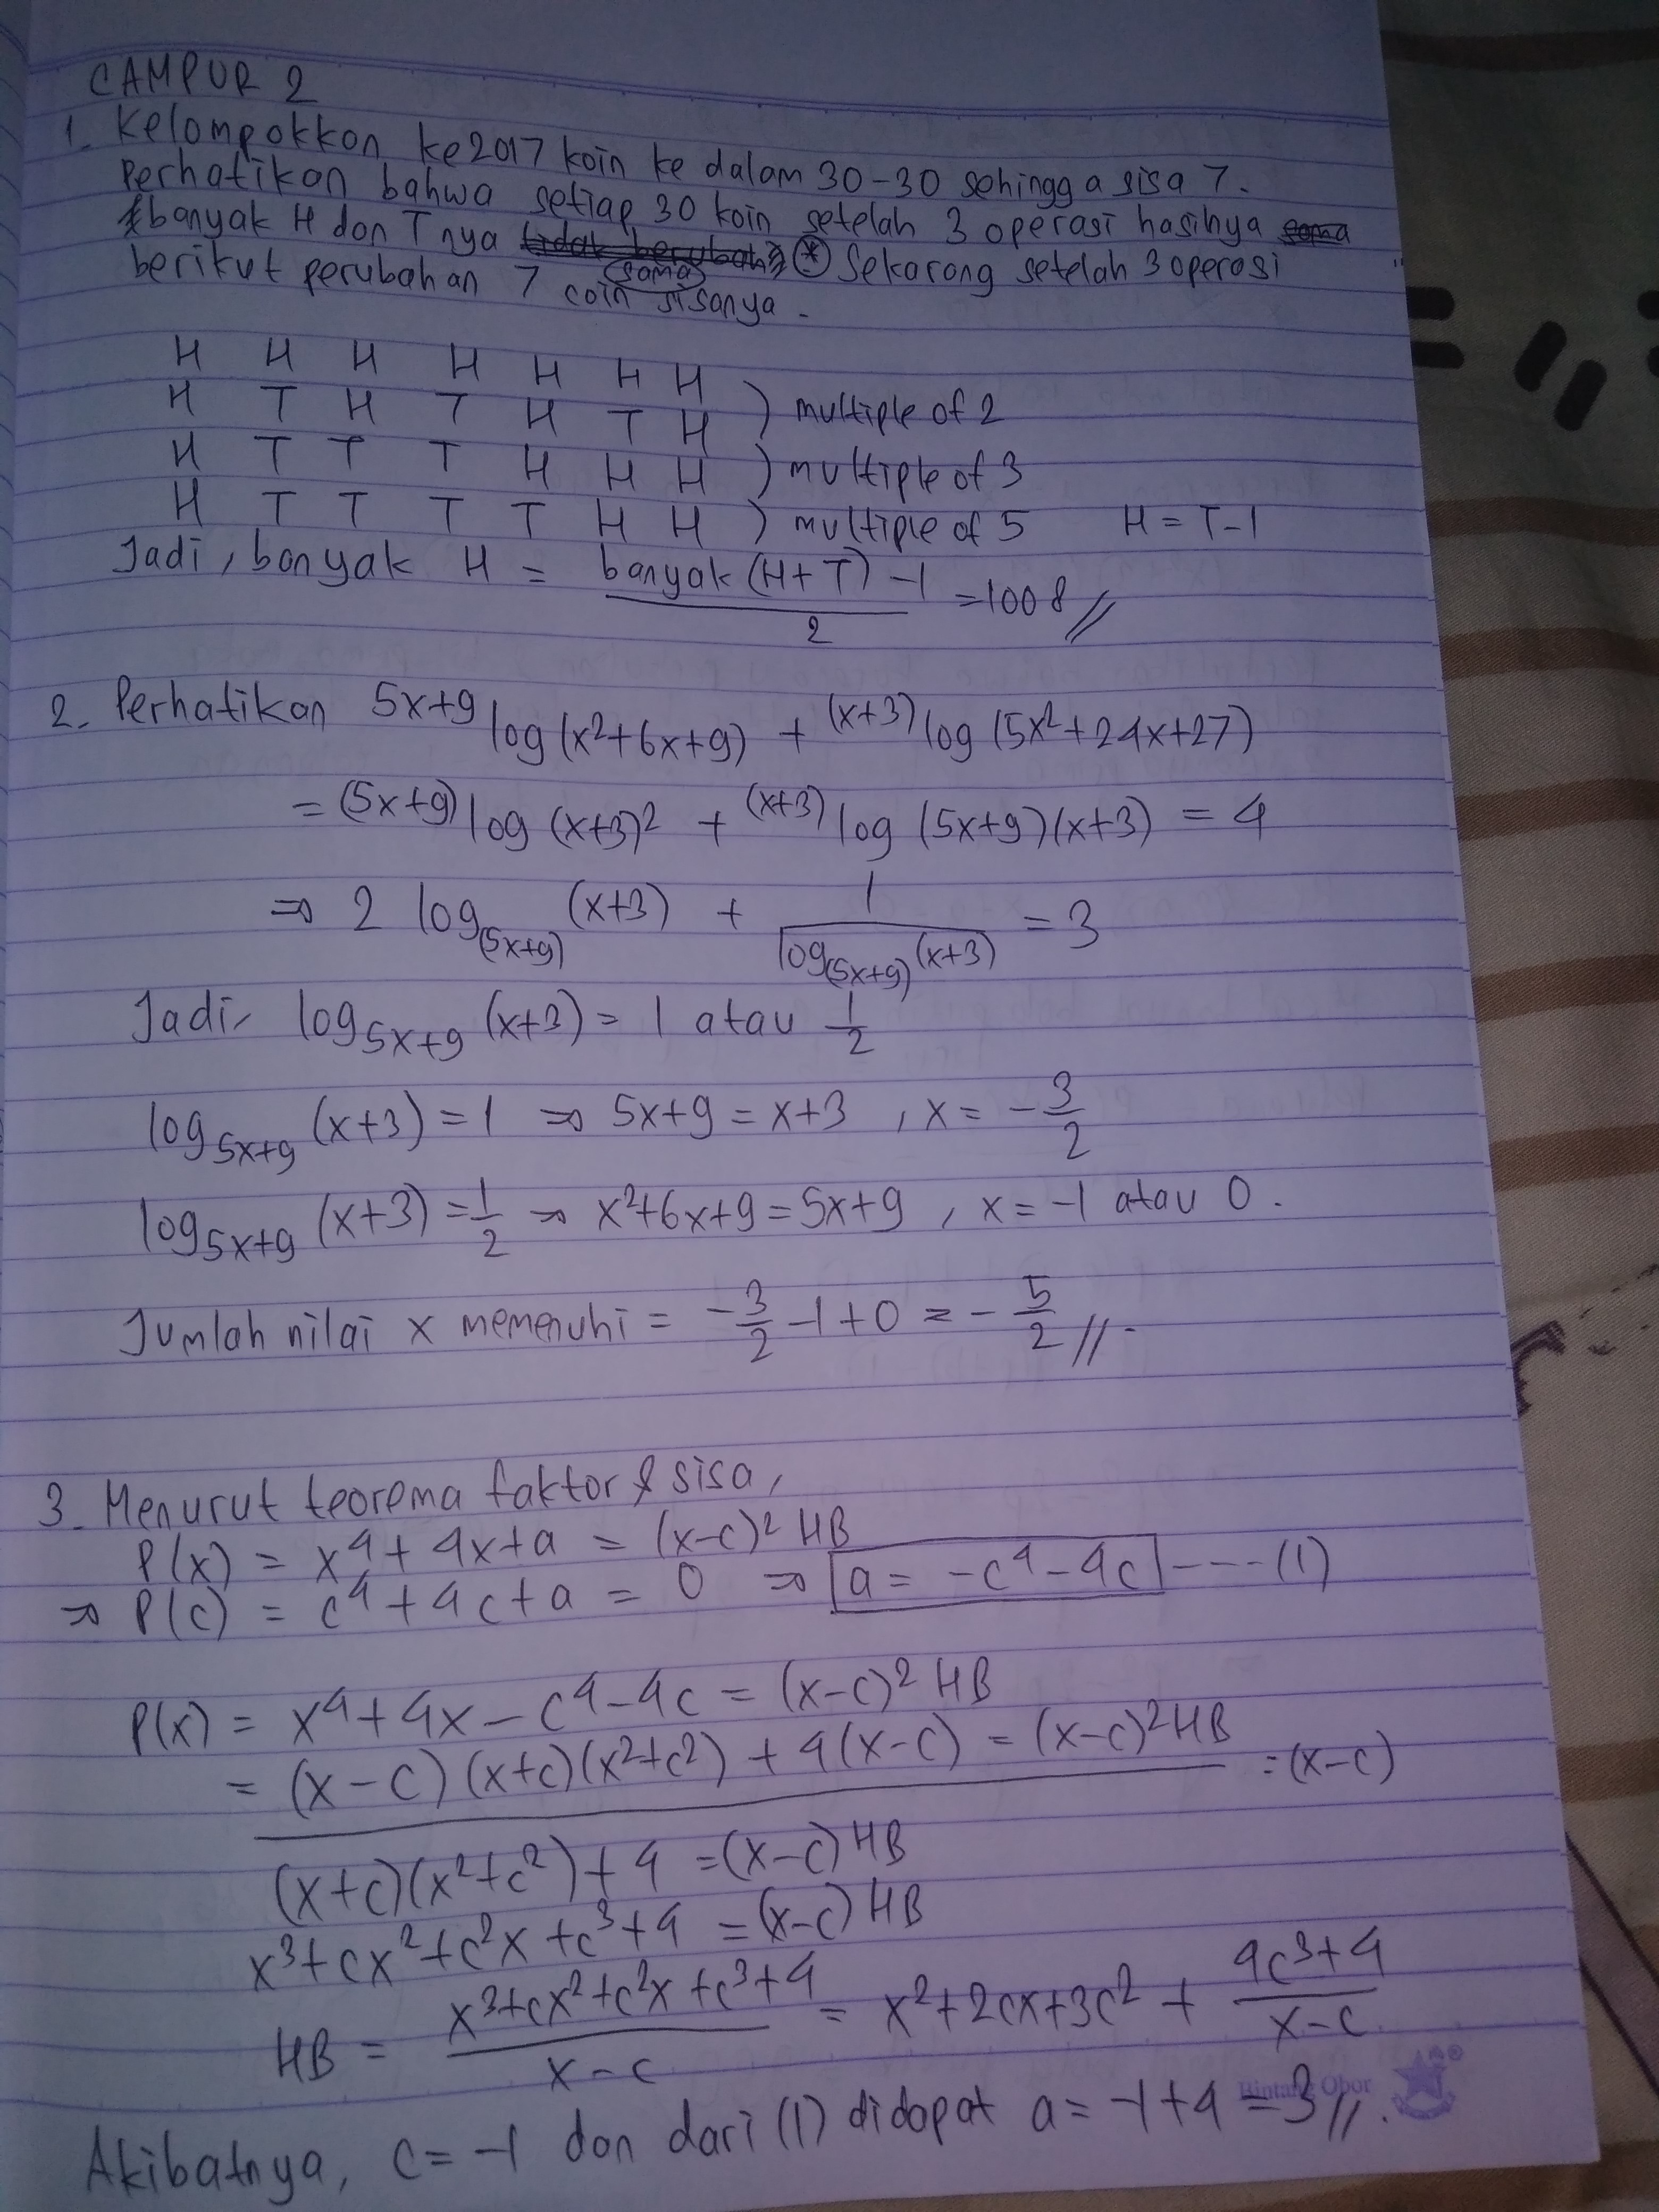 CAMPUR 2
1. Kelompokkan ke2017 koin ke dalam 30-30 sehingga sisa 7.
Perhatikan bahwa setiap 30 koin setelah 3 operasi hasilnya
banyak H dan T nya sama. (*) Sekarang setelah 3 operasi
berikut perubahan 7 coin sisanya.
H H H H H H H
H T H T H T H ) multiple of 2
H T T T H H H ) multiple of 3
H T T T T H H ) multiple of 5 H = T-1
Jadi, banyak H = (banyak (H+T) - 1)/2 = 1008 //
2. Perhatikan ^{5x+9}log (x²+6x+9) + ^{(x+3)}log (5x²+24x+27)
= ^{(5x+9)}log (x+3)² + ^{(x+3)}log (5x+9)(x+3) = 4
⇒ 2 log_{(5x+9)} (x+3) + 1/(log_{(5x+9)} (x+3)) = 3
Jadi, log_{5x+9} (x+3) = 1 atau 1/2
log_{5x+9} (x+3) = 1 ⇒ 5x+9 = x+3 , x = -3/2
log_{5x+9} (x+3) = 1/2 ⇒ x²+6x+9 = 5x+9 , x = -1 atau 0.
Jumlah nilai x memenuhi = -3/2 -1+0 = -5/2 //.
3. Menurut teorema faktor & sisa,
P(x) = x⁴+4x+a = (x-c)² HB
⇒ P(c) = c⁴+4c+a = 0 ⇒ a = -c⁴-4c ----(1)
P(x) = x⁴+4x-c⁴-4c = (x-c)² HB
= (x-c)(x+c)(x²+c²) + 4(x-c) = (x-c)² HB
:(x-c)
(x+c)(x²+c²)+4 = (x-c) HB
x³+cx²+c²x+c³+4 = (x-c) HB
HB = (x³+cx²+c²x+c³+4)/(x-c) = x²+2cx+3c² + (4c³+4)/(x-c)
Bintang Obor
Akibatnya, c = -1 dan dari (1) didapat a = -1+4 = 3 //.